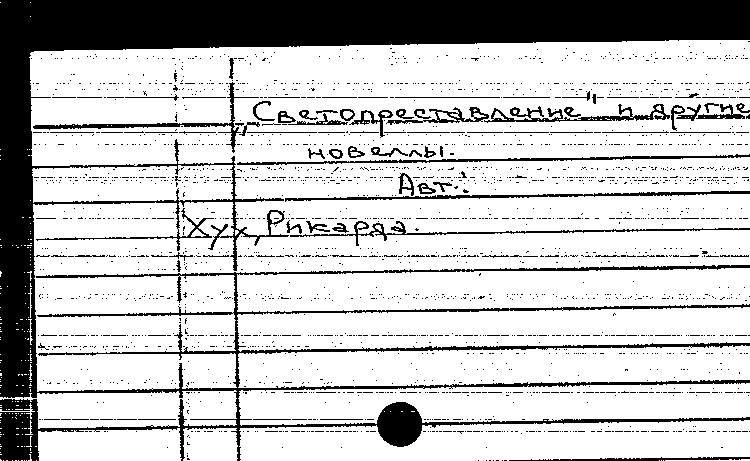 „Светопреставление" и другие
новеллы.
Авт.:
Хух, Рикарда.